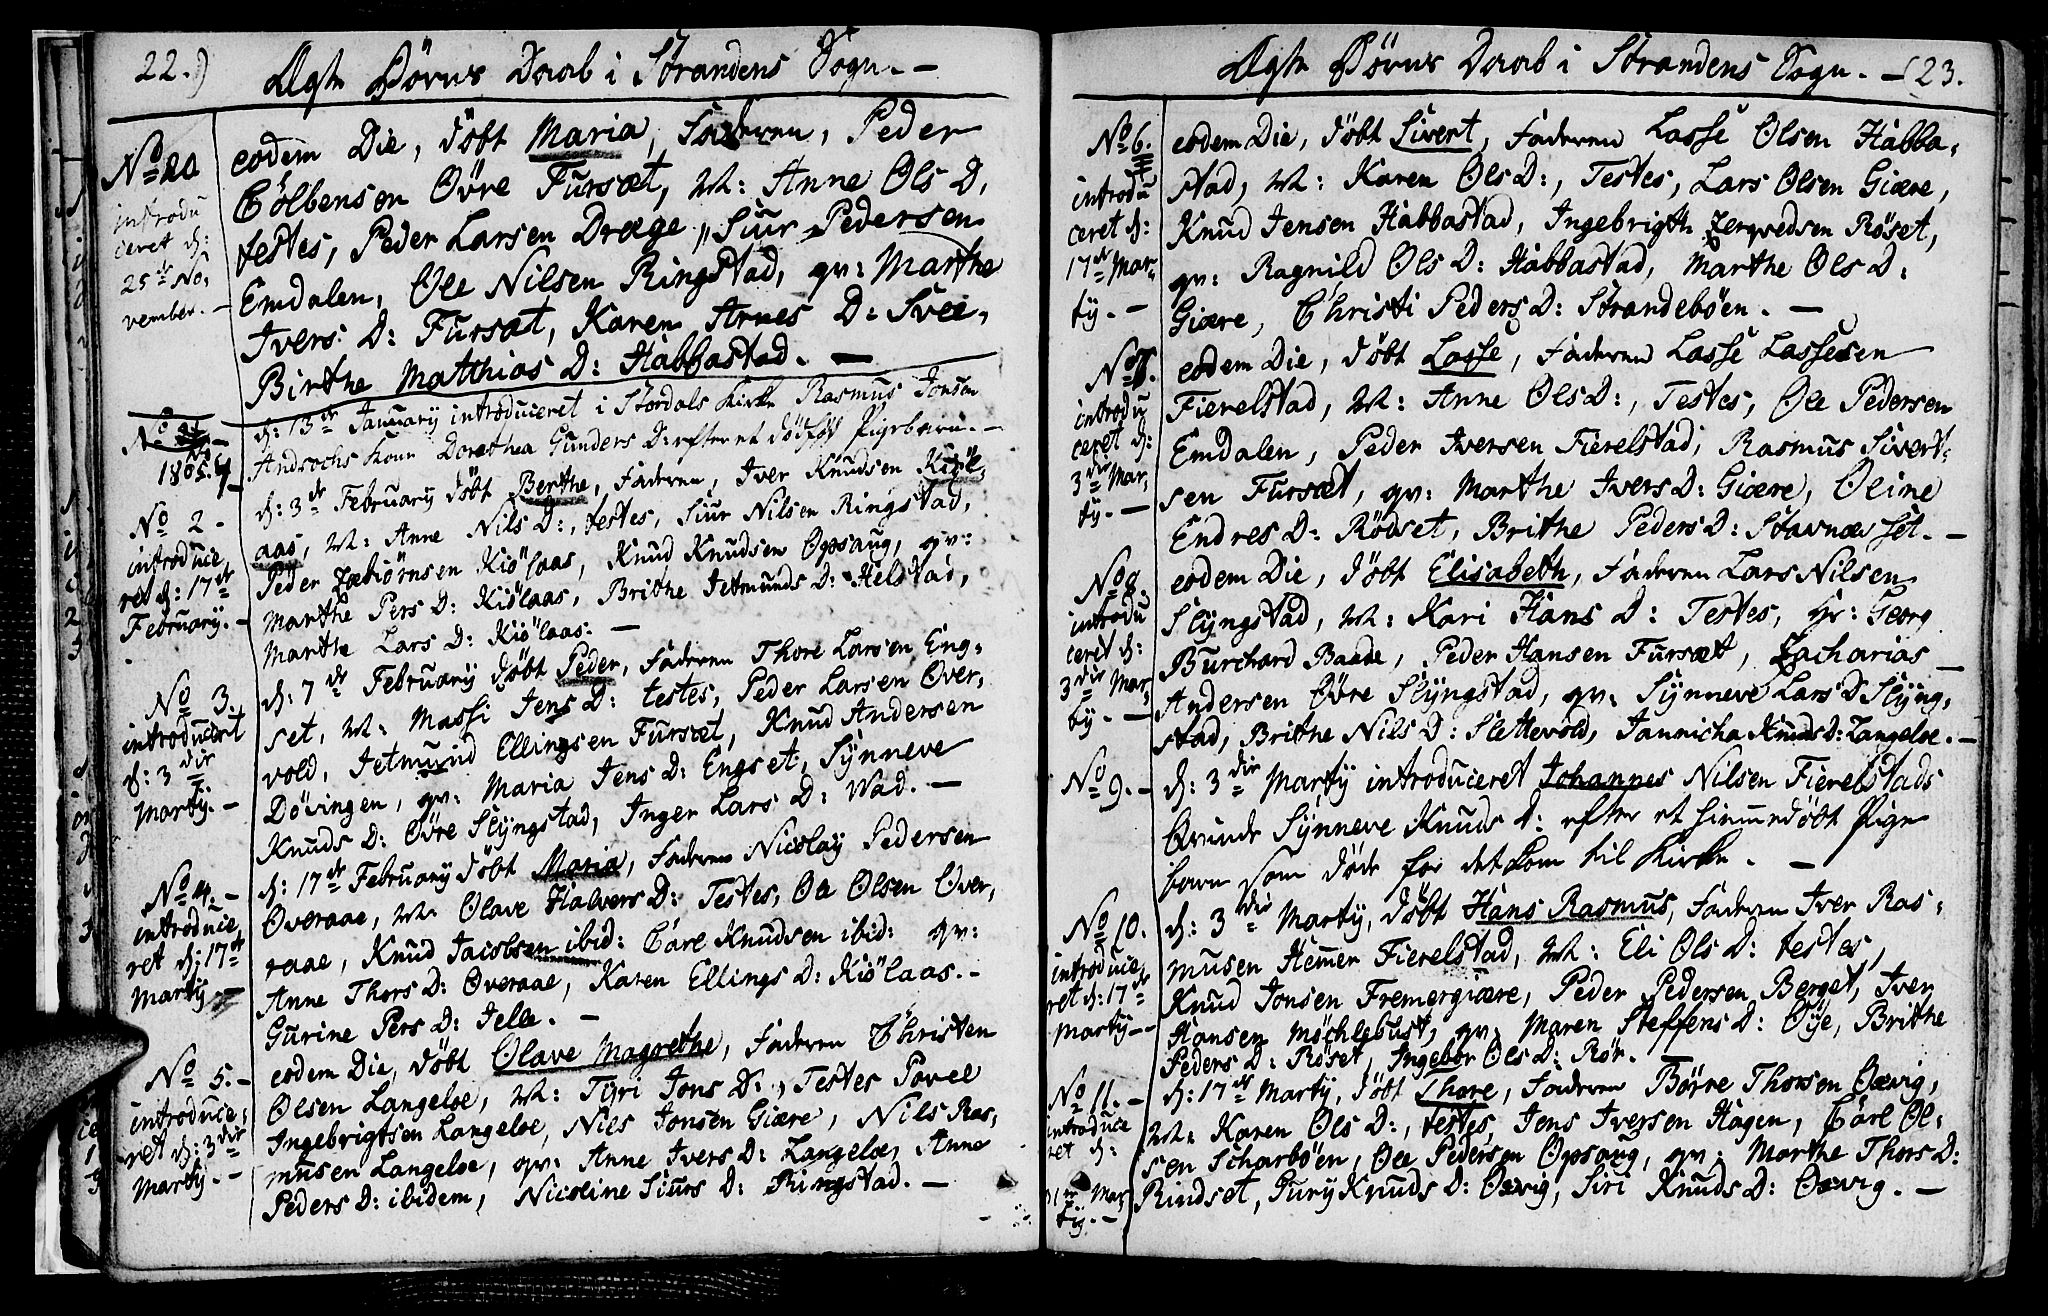 22.)
Ægte Børns Daab i Strandens Sogn. -
No 20
introdu
ceret d:
25de No,
vember. -
eodem Die, døbt Maria, Faderen, Peder
Cølbensen Øvre Fursæt, M: Anne Ols D,
testes, Peder Larsen Drage, Siur Pedersen
Emdalen, Ole Nilsen Ringstad, qv: Marthe
Ivers D: Fursæt, Karen Arnes D: Svee,
Birthe Matthias D: Habbastad. -
No
1805.
d: 13de January introduceret i Stordals Kirke Rasmus Jonsen
Kone Dorothea Gunders D: efter et dødfød Pigebarn. -
No 2 -
introduce,
ret d: 17de
February. -
d: 3de February døbt Berthe, Faderen, Iver Knudsen Kiøl,
aas, M: Anne Nils D:, testes, Siur Nilsen Ringstad,
Peder Kiølaas, Knud Knudsen Opsaug, qv:
Marthe Pers D: Kiølaas, Brithe Jetmunds D: Helstad,
Marthe Lars D: Kiølaas. -
No 3.
introduceret
d: 3die
Martij. -
d: 7de February døbt Peder, Faderen Thore Larsen Eng-
set, M: Massi Jens D: testes, Peder Larsen Over,
vold, Jetmund Ellingsen Fursæt, Knud Andersen
Døvingen, qv: Maria Jens D: Engset, Synneve
Knuds D: Øvre Slyngstad, Inger Lars D: Wad. -
No 4. -
introduce,
ret d: 17de
Martij -
d: 17de February døbt Maria, Faderen Nicolay Pedersen
Overaae, M: Olave Halvers D: Testes, Ole Olsen Over,
raae, Knud Jacobsen ibid: Carl Knudsen ibid: qv:
Anne Thors D: Overaae, Karen Ellings D: Kiølaas. -
Gurine Pers D: Jelle. -
No 5. -
introduce,
ret d: 3die
Martij. -
eodem Die, døbt Olave Magrethe, Faderen Christen
Olsen Langeloe, M: Tyri Jons D:, Testes Povel
Ingebrigtsen Langeloe, Nils Jonsen Giære, Nils Ras,
musen Langeloe, qv: Anne Ivers D: Langeloe, Anne
Peders D: ibidem, Nicoline Siurs D: Ringstad. -
Ægte Børns Daab i Strandens Sogn. - (23.
No 6.
introdu
ceret d:
17de Mar-
tij. -
eodem Die, døbt Sivert, Faderen Lasse Olsen Habba,
stad, M: Karen Ols D:, Testes, Lars Olsen Giære,
Knud Jensen Habbastad, Ingebrigth Røset,
qv: Ragnild Ols D: Habbastad, Marthe Ols D:
Giære, Christi Peders D: Strandebøen. -
No 7.
introdu
ceret d:
3die Mar,
tij. -
eodem Die, døbt Lasse, Faderen Lasse Lassesen
Fierelstad, M: Anne Ols D:, Testes, Ole Pedersen
Emdalen, Peder Iversen Fierelstad, Rasmus Sivert-
sen Fursæt, qv: Marthe Ivers D: Giære, Oline
Endres D: Rødset, Brithe Peders D: Stavnæsset. -
No 8.
introdu
ceret d:
3die Mar,
tij. -
eodem Die, døbt Elisabeth, Faderen Lars Nilsen
Slyngstad, M: Kari Hans D: Testes, Hr: Georg
Burchard Baade, Peder Hansen Fursæt, Zacharias
Andersen Øvre Slyngstad, qv: Synneve Lars D Slyng,
stad, Brithe Nils D: Slettevold, Jannicha Knuds D: Langeloe. -
No 9. -
d: 3die Martij introduceret Johannes Nilsen Fierelstads
Qvinde Synneve Knuds D: efter et hiemmedøbt Pige
barn som døde for det kom til Kirke. -
No 10.
introduce,
ret d: 17de
Martij -
d: 3die Martij, døbt Hans Rasmus, Faderen Iver Ras,
musen Hemmer Fierelstad, M: Eli Ols D: testes,
Knud Jonsen Fremergiære, Peder Pedersen Berget, Iver
Hansen Møchlebust, qv: Maren Steffens D: Øye, Brithe
Peders D: Røset, Ingebor Ols D: Rør. -
No 11. -
introduce
ret d:
31te Mar,
tij. -
d: 17de Martij, døbt Thore, Faderen Børre Thorsen Oxvig,
M: Karen Ols D:, testes, Jens Iversen Hagen, Carl Ol-
sen Scharbøen, Ole Pedersen Opsaug, qv: Marthe Thors D:
Rindset, Gury Knuds D: Oxvig, Siri Knuds D: Oxvig. -